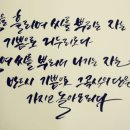 을 흘리며 씨를 뿌리는 자는
기쁨으로 거두리로다
며 씨를 뿌리러 나가는 자는
반드시 기쁨으로 그 곡식 단을
가지고 돌아오리라